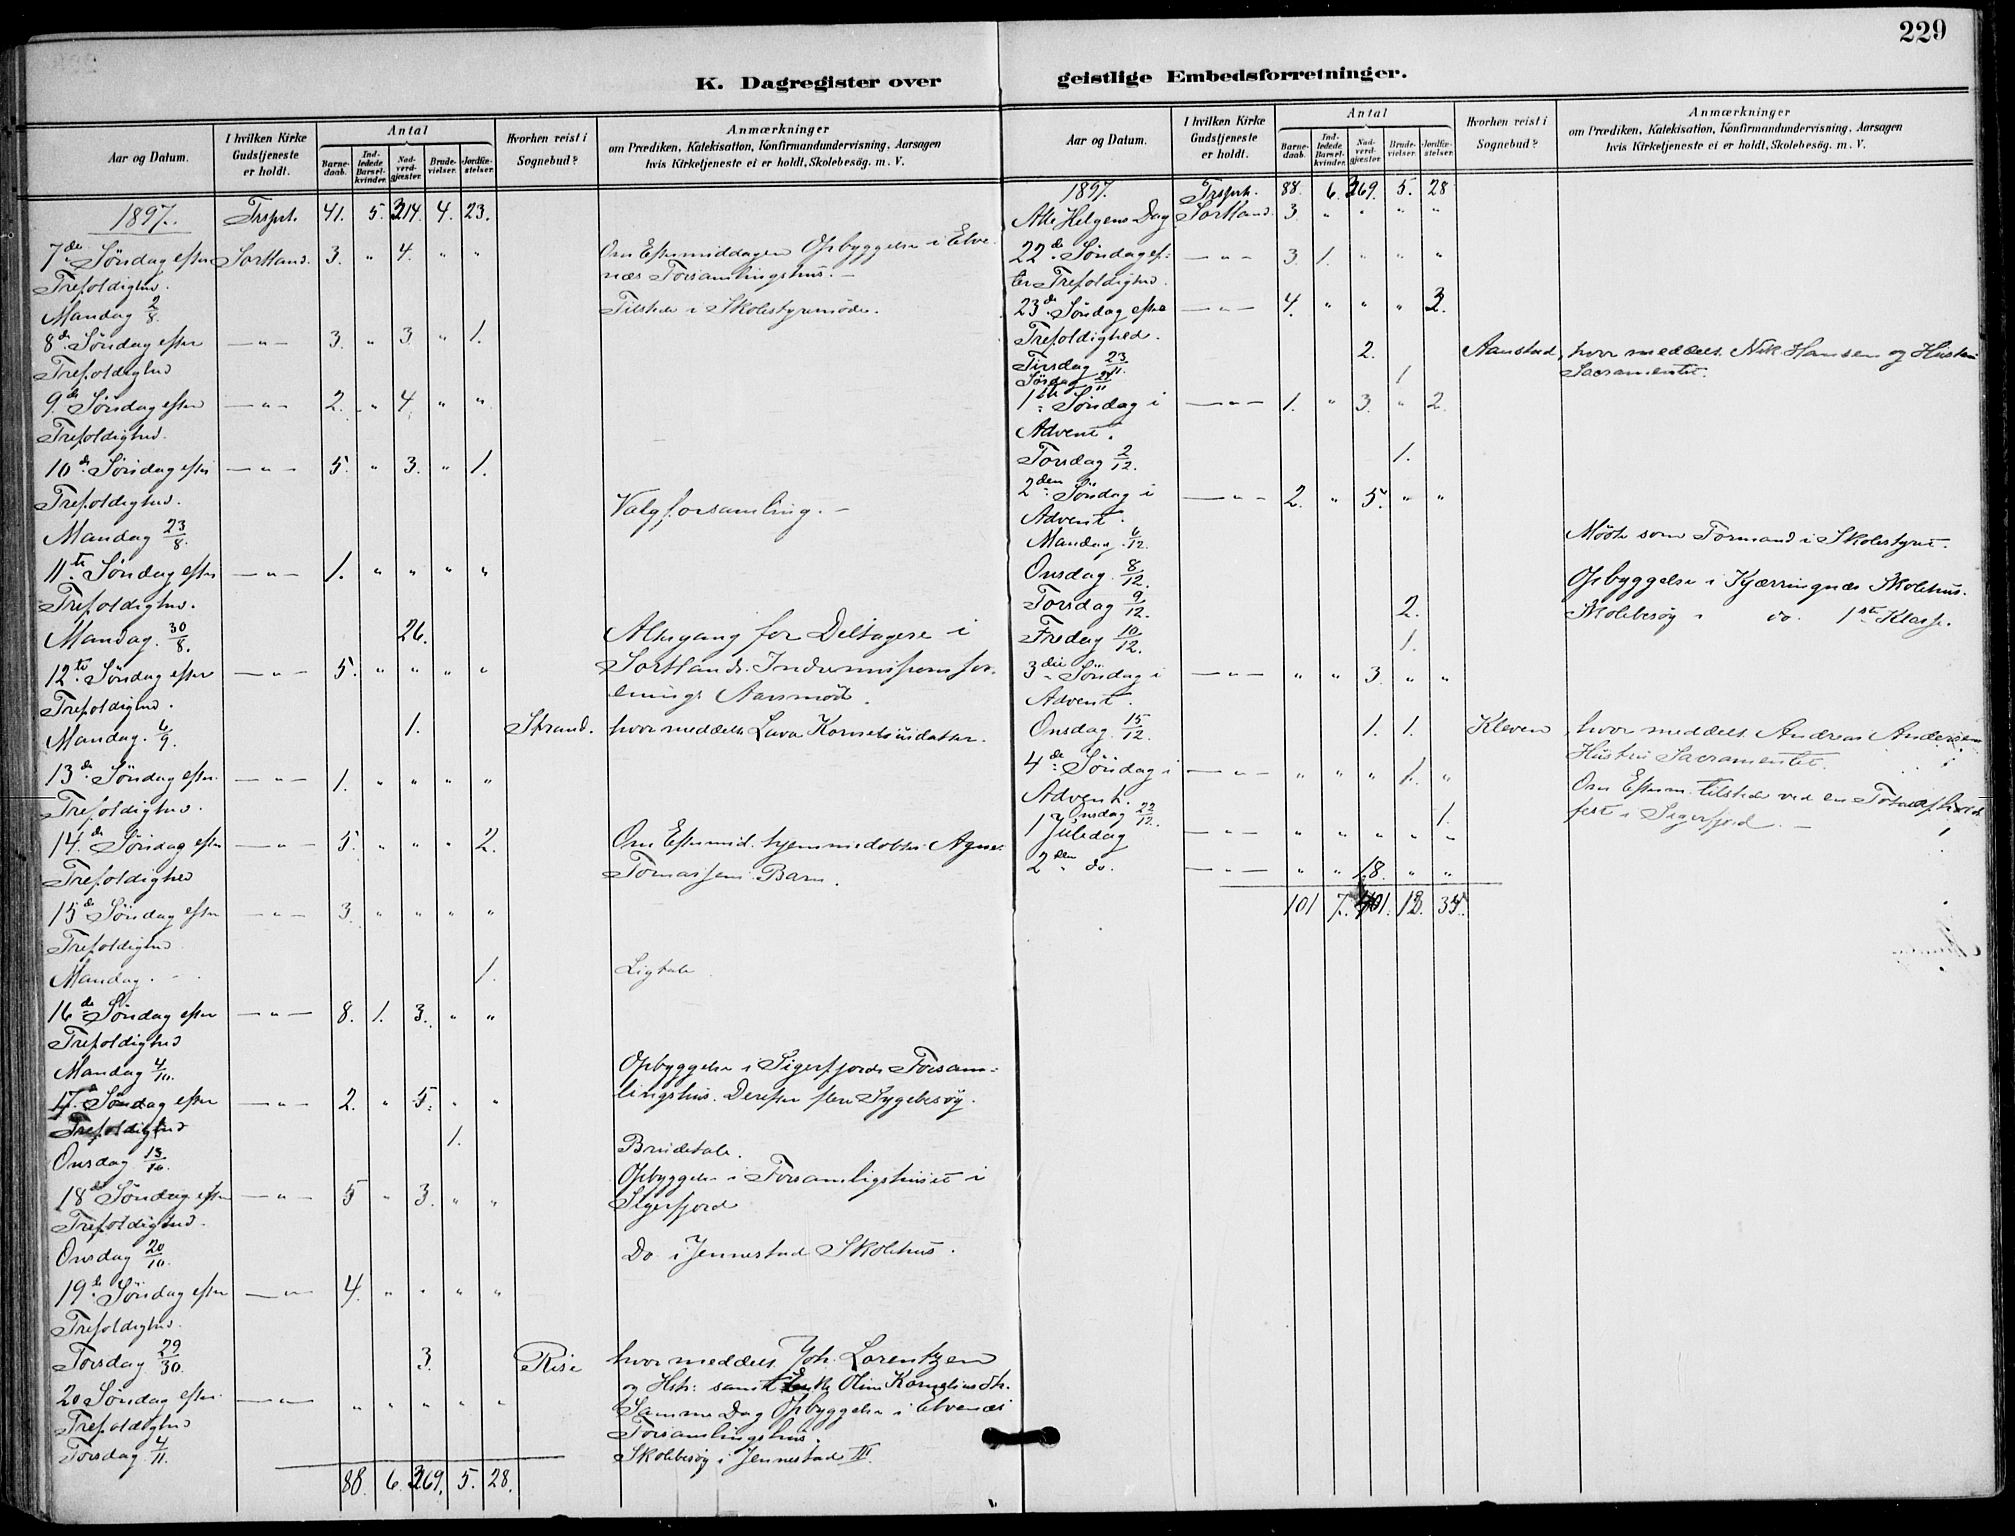 229
K. Dagregister over geistlige Embedsforretninger.
Aar og Datum. I hvilken Kirke Gudstjeneste er holdt. Antal Hvorhen reist i Sognebud? Anmærkninger
Barnedaab. Indledede Barselkvinder. Nadverdgjæster. Brudevielser. Jordfæstelser. om Prædiken, Katekisation, Konfirmandundervisning, Aarsagen hvis Kirketjeneste ei er holdt, Skolebesög. m. V.
1897. Trsprt. 41. 5. 314. 4. 23.
7de Søndag efter Sortland. 3. " 4. " " Om Eftermiddagen Opbyggelse i Elve-
Trefoldighed. næs Forsamlingshus. -
Mandag 2/8. Tilstede i Skolestyremøde.
8de Søndag efter — " — 3. " 3. " 1.
Trefoldighed
9de Søndag efter — " — 2. " 4. " "
Trefoldighed.
10de Søndag efter — " — 5. " 3. " 1.
Trefoldighed.
Mandag 23/8. Valgforsamling. -
11te Søndag efter — " — 1. " " " "
Trefoldighed.
Mandag. 30/8. 26. Altergang for Deltagere i
12te Søndag efter — " — 5. " " " " Sortlands Indremissionsfor-
Trefoldighed. enings Aarsmøde.
Mandag. 6/9. 1. Strand. hvor meddelt Lava Kornelsiusdatter.
13de Søndag efter — " — 1. " " " "
Trefoldighed.
14de Søndag efter — " — 5. " " " 2. Om Eftermid. hjemmedøbtes Agnes
Trefoldighed Tomassens Barn.
15de Søndag efter — " — 3. " " " "
Trefoldighed
Mandag. - - 1. Ligtale
16de Søndag efter — " — 8. 1. 3. " "
Trefoldighed
Mandag 4/10. Opbyggelse i Sigerfjords Forsam-
17. Søndag efter — " — 2. " 5. " " lingshus. Derefter flere Sygebesøg.
Trefoldighed
Onsdag 13/10. 1. Brudetale.
18de Søndag efter — " — 5 " 3. " " Opbyggelse i Forsamligshuset i
Trefoldighed. Sigerfjord
Onsdag 20/10. Do i Jennestad Skolehus.
19de Søndag efter — " — 4. " " " "
Trefoldighed.
Torsdag 29/30. 3. Rise hvor meddelt Joh. Lorentzen
20 Søndag efter — " — " " " " " og Hstr: samt Enke Oline Korneliusdtr.
Trefoldighed Samme Dag Opbyggelse i Elvenæs
Forsamlingshus.
Torsdag 4/11. Skolebesøg i Jennestad III.
88. 6. 369. 5. 28.
Aar og Datum. I hvilken Kirke Gudstjeneste er holdt. Antal Hvorhen reist i Sognebud? Anmærkninger
Barnedaab. Indledede Barselkvinder. Nadverdgjæster. Brudevielser. Jordfæstelser. om Prædiken, Katekisation, Konfirmandundervisning, Aarsagen hvis Kirketjeneste ei er holdt, Skolebesög. m. V.
1897. Trsprt. 88. 6. 369. 5. 28
Alle Helgens Dag Sortland. 3 " " " "
22de Søndag ef- — " — 3. 1. " " "
ter Trefoldighed.
23de Søndag efter — " — 4. " " " 3.
Trefoldighed.
Tirsdag 23/11. 2. Aanstad, hvor meddelt Nik. Hansen og Hustru
1 Sacramentet.
1ste Søndag i — " — 1. " 3. " 2.
Advent.
Torsdag 2/12. 1.
2den Søndag i — " — 2. " 5. " "
Advent.
Mandag 6/12. Møde som Formand i Skolestyret.
Onsdag 8/12. Opbyggelse i Kjærringnæs Skolehus.
Torsdag 9/12. 2. Skolebesøg i do. 1ste Klasse.
Fredag 10/12. 1.
3die Søndag i — " — " " 3. " "
Advent.
Onsdag 15/12. 1. 1. Kleven hvor meddelt Andreas Andersens
Hustru Sacramentet.
4de Søndag i — " — " " " 1. " Om Efterm. tilstede ved en
Advent. fest i Sigerfjord. -
Onsdag 22/12. 1.
1 Juledag — " — " " " " "
2den do. — " — " " 18. " "
101 7. 401. 12. 35.